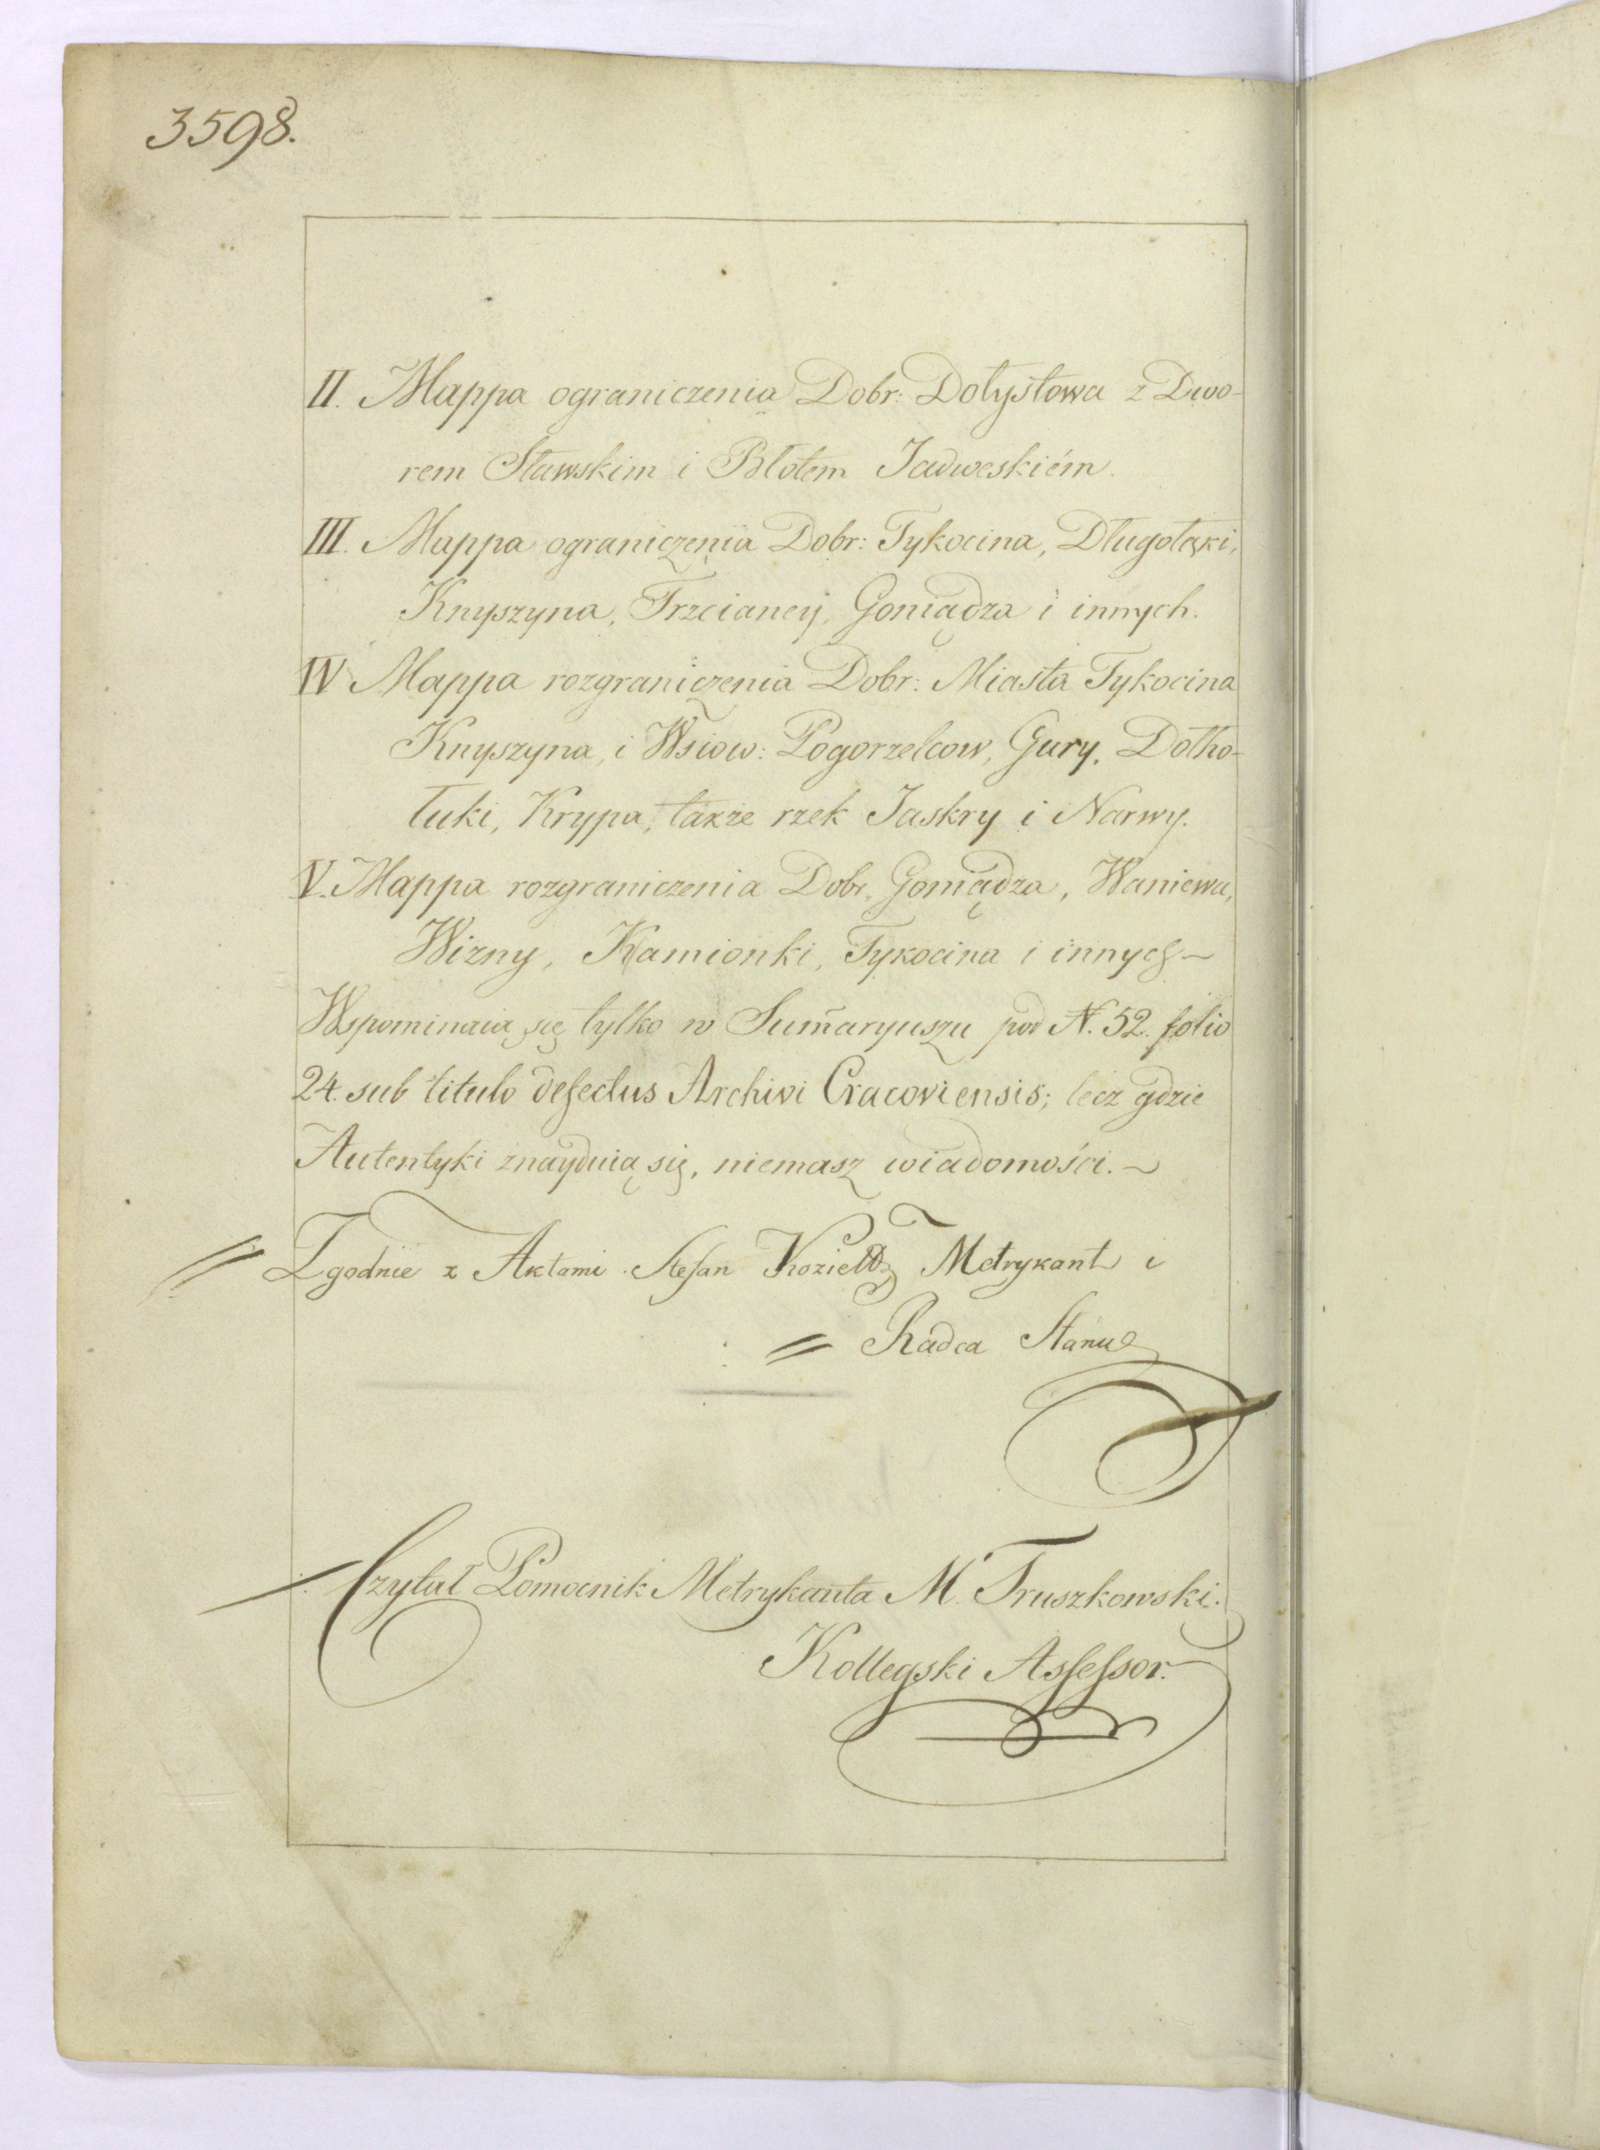 3598.
II. Mappa ograniczenia Dobr: Dołysłowa z Dwo-
rem Sławskim i Błotem Jadweskiém.
III. Mappa ograniczenia Dobr: Tykocina, Długołęki,
Knyszyna, Trzcianey, Goniądza i innych.
IV Mappa rozgraniczenia Dobr: Miasta Tykocina
Knyszyna, i Wsiow: Pogorzelcow, Gury, Dołko-
łuki, Krypa, także rzek Jaskry i Narwy.
V. Mappa rozgraniczenia Dobr. Goniądza, Waniewa,
Wizny, Kamionki, Tykocina i innych ~
Wspominaią się tylko w Sum̃aryuszu pod N. 52. folio
24. sub titulo defectus Archivi Cracoviensis; lecz gdzie
Autentyki znayduią się, niemasz wiadomości. ~
Zgodnie z Aktami Stefan Koziełł Metrykant i
Radca Stanu
Czytał Pomocnik Metrykanta M. Truszkowski.
Kollegski Assessor.